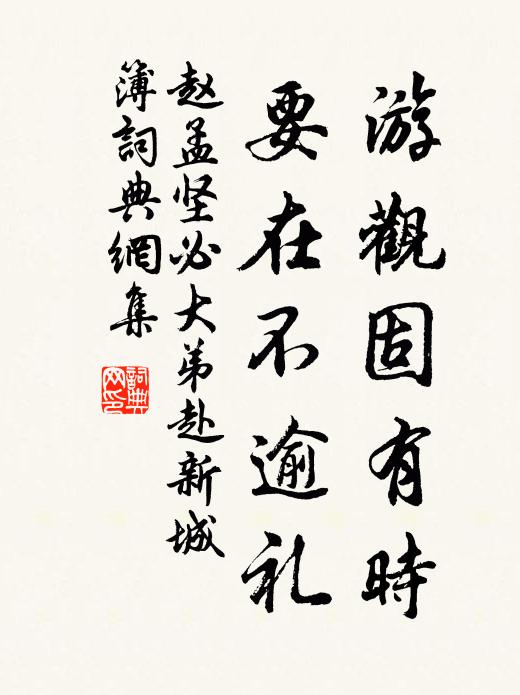 游觀固有時
要在不逾礼
赵孟坚必大弟赴新城
簿詞典網集
詞典网印